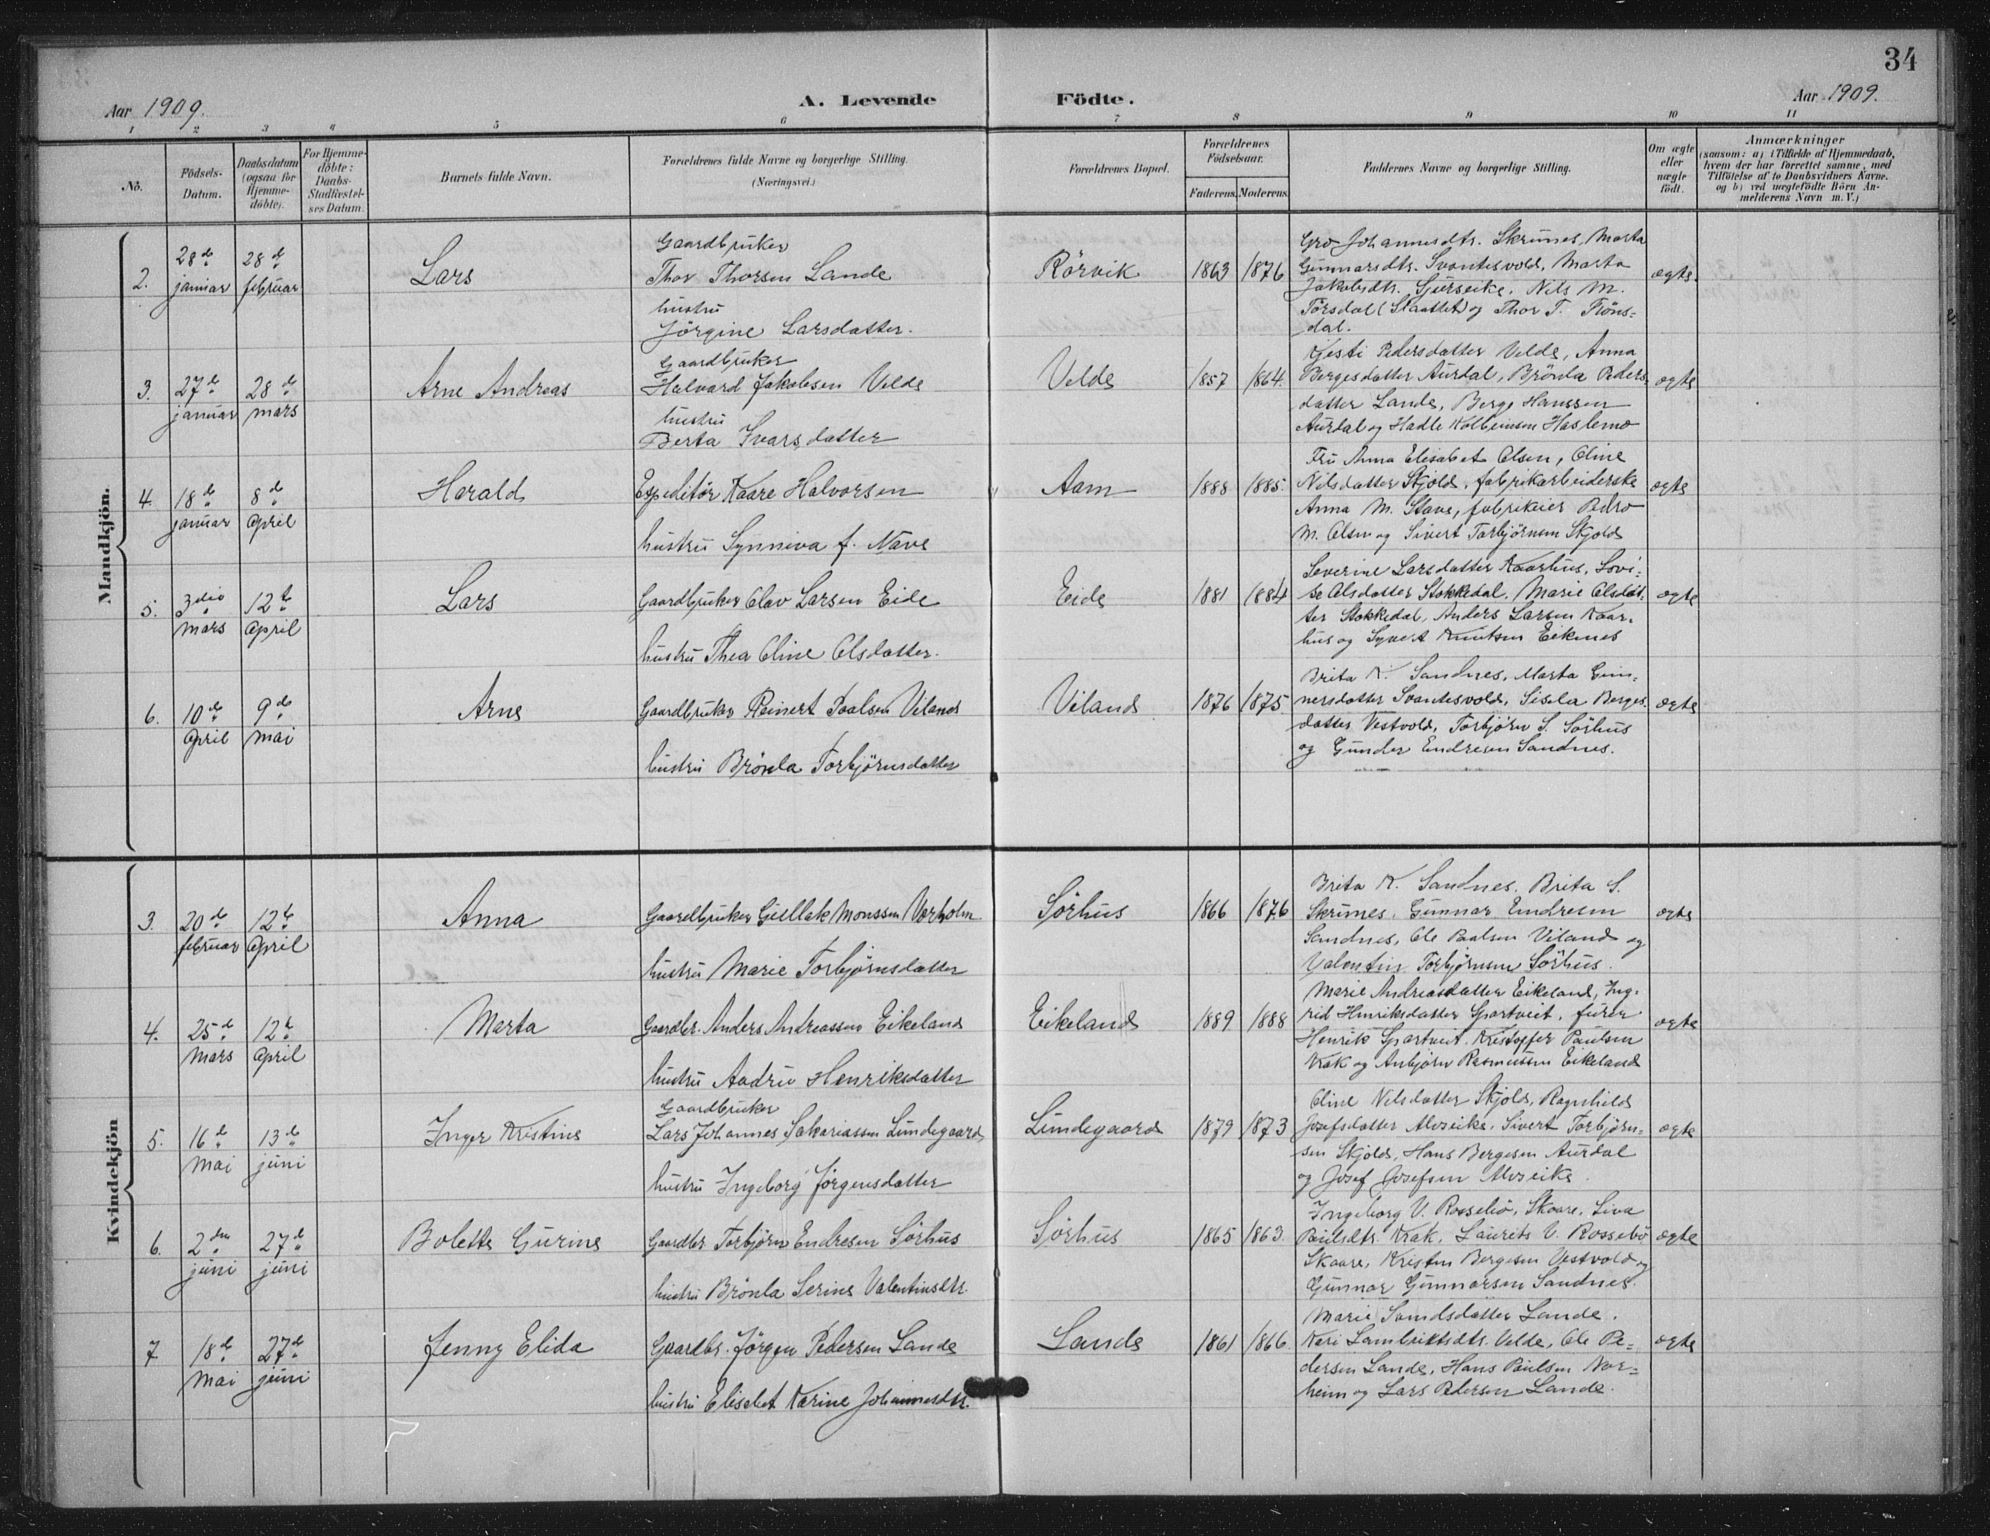 34
Aar 1909.
A. Levende Födte.
Aar 1909.
1 2 3 4 5 6 7 8 9 10 11
No.
Födsels-Datum.
Daabsdatum (ogsaa for Hjemme-döbte).
For Hjemme-döbte: Daabs-Stadfæstelses Datum.
Barnets fulde Navn.
Forældrenes fulde Navne og borgerlige Stilling. (Næringsvei.)
Forældrenes Bopæl.
Forældrenes Födselsaar.
Faderens. Moderens.
Faddernes Navne og borgerlige Stilling.
Om ægte eller uægte födt.
Anmærkninger
(saasom: a) i Tilfælde af Hjemmedaab, hvem der har forrettet samme, med Tilföielse af to Daabsvidners Navne. og b) ved uægtefödte Börn Anmelderens Navn m. V.)
Mandkjön.
2. 28de januar 28de februar Lars
Gaardbruker
Thor Thorsen Lande
hustru
Jörgine Larsdatter.
Rörvik 1863 1876
Gro Johannesdtr. Skrunes, Marta
Gunnarsdtr. Svantesvold, Marta
Jakobsdtr. Gjerseike, Nils M.
Torsdal (Slaattet) og Thor T. Fröns-
dal.
ægte.
3. 27de januar 28de mars Arne Andreas
Gaardbruker
Halvard Jakobsen Velde
hustru
Berta Ivarsdatter
Velde 1857 1864.
Kjesti Pedersdatter Velde, Anna
Bergesdatter Aurdal, Brönla Peders-
datter Lande, Berge Hanssen
Aurdal og Hadle Kolbeinsen Haslemo
ægte
4. 18de januar 8de april Harald
Expeditör Kaare Halvorsen
hustru Synneva f. Nave
Aam 1888 1885.
Fru Anna Elisabet Olsen, Oline
Nilsdatter Skjold, fabrikarbeiderske
Anna M. Stave, fabrikeier Pedro
M. Olsen og Sivert Torbjörnsen Skjold
ægte
5. 3die mars 12te april Lars
Gaardbruker Olav Larsen Eide
hustru Thea Oline Olsdatter.
Eide 1881 1884
Severine Larsdatter Kaarhus, Lovi-
se Olsdatter Stokkedal, Marie Olsdat-
ter Stokkedal, Anders Larsen Kaar-
hus og Syvert Knutsen Eiknes
ægte
6. 10de april 9de mai Arne
Gaardbruker Reinert Paalsen Viland
hustru Brönla Torbjörnsdatter
Viland 1876 1875
Brita K. Sandnes, Marta Gun-
nersdatter Svantesvold, Sisela Berges-
datter Vestvold, Torbjörn S. Sörhus
og Gunder Endresen Sandnes.
ægte
Kvindekjön
3. 20de februar 12te april Anna
Gaardbruker Gullak Monssen Varholm
hustru Marie Torbjörnsdatter
Sörhus 1866 1876
Brita K. Sandnes, Brita S.
Skrunes, Gunnar Endresen
Sandnes, Ole Paalsen Viland og
Valentin Torbjörnsen Sörhus.
ægte
4. 25de mars 12te april Marta
Gaardbr. Anders Andreassen Eikeland
hustru Aadru Henriksdatter
Eikeland 1889 1888
Marie Andreasdatter Eikeland, Ing-
rid Henriksdatter Spartveit, furer
Henrik Spartveit, Kristoffer Paulsen
Krak og Anbjörn Rasmussen Eikeland
ægte
5. 16de mai 13de juni Inger Kristine
Gaardbruker
Lars Johannes Sakariassen Lundegaard
hustru Ingeborg Jörgensdatter
Lundegaard 1879 1873
Oline Nilsdatter Skjold, Ragnhild
Josefsdatter Alvseike, Sivert Torbjörn-
sen Skjold, Hans Bergesen Aurdal
og Josef Josefsen Alvseike.
ægte
6. 2den juni 27de juni Bolette Gurine
Gaardbr. Torbjörn Endresen Sörhus
hustru Brönla Serine Valentinsdtr.
Sörhus 1865 1863.
Ingeborg V. Rossebö, Skaare, Siva
Paulsdtr. Krak, Laurits V. Rossebö
Skaare, Kristen Bergesen Vestvold og
Gunnar Gunnarsen Sandnes.
ægte
7 18de mai 27de juni Jenny Elida
Gaardbr. Jörgen Pedersen Lande
hustru Elisabet Karine Johannesdtr.
Lande 1861 1866.
Marie Lande.
Kari Lambriktsdtr. Velde, Ole Pe-
dersen Lande, Hans Paulsen Nor-
heim og Lars Pedersen Lande.
ægte